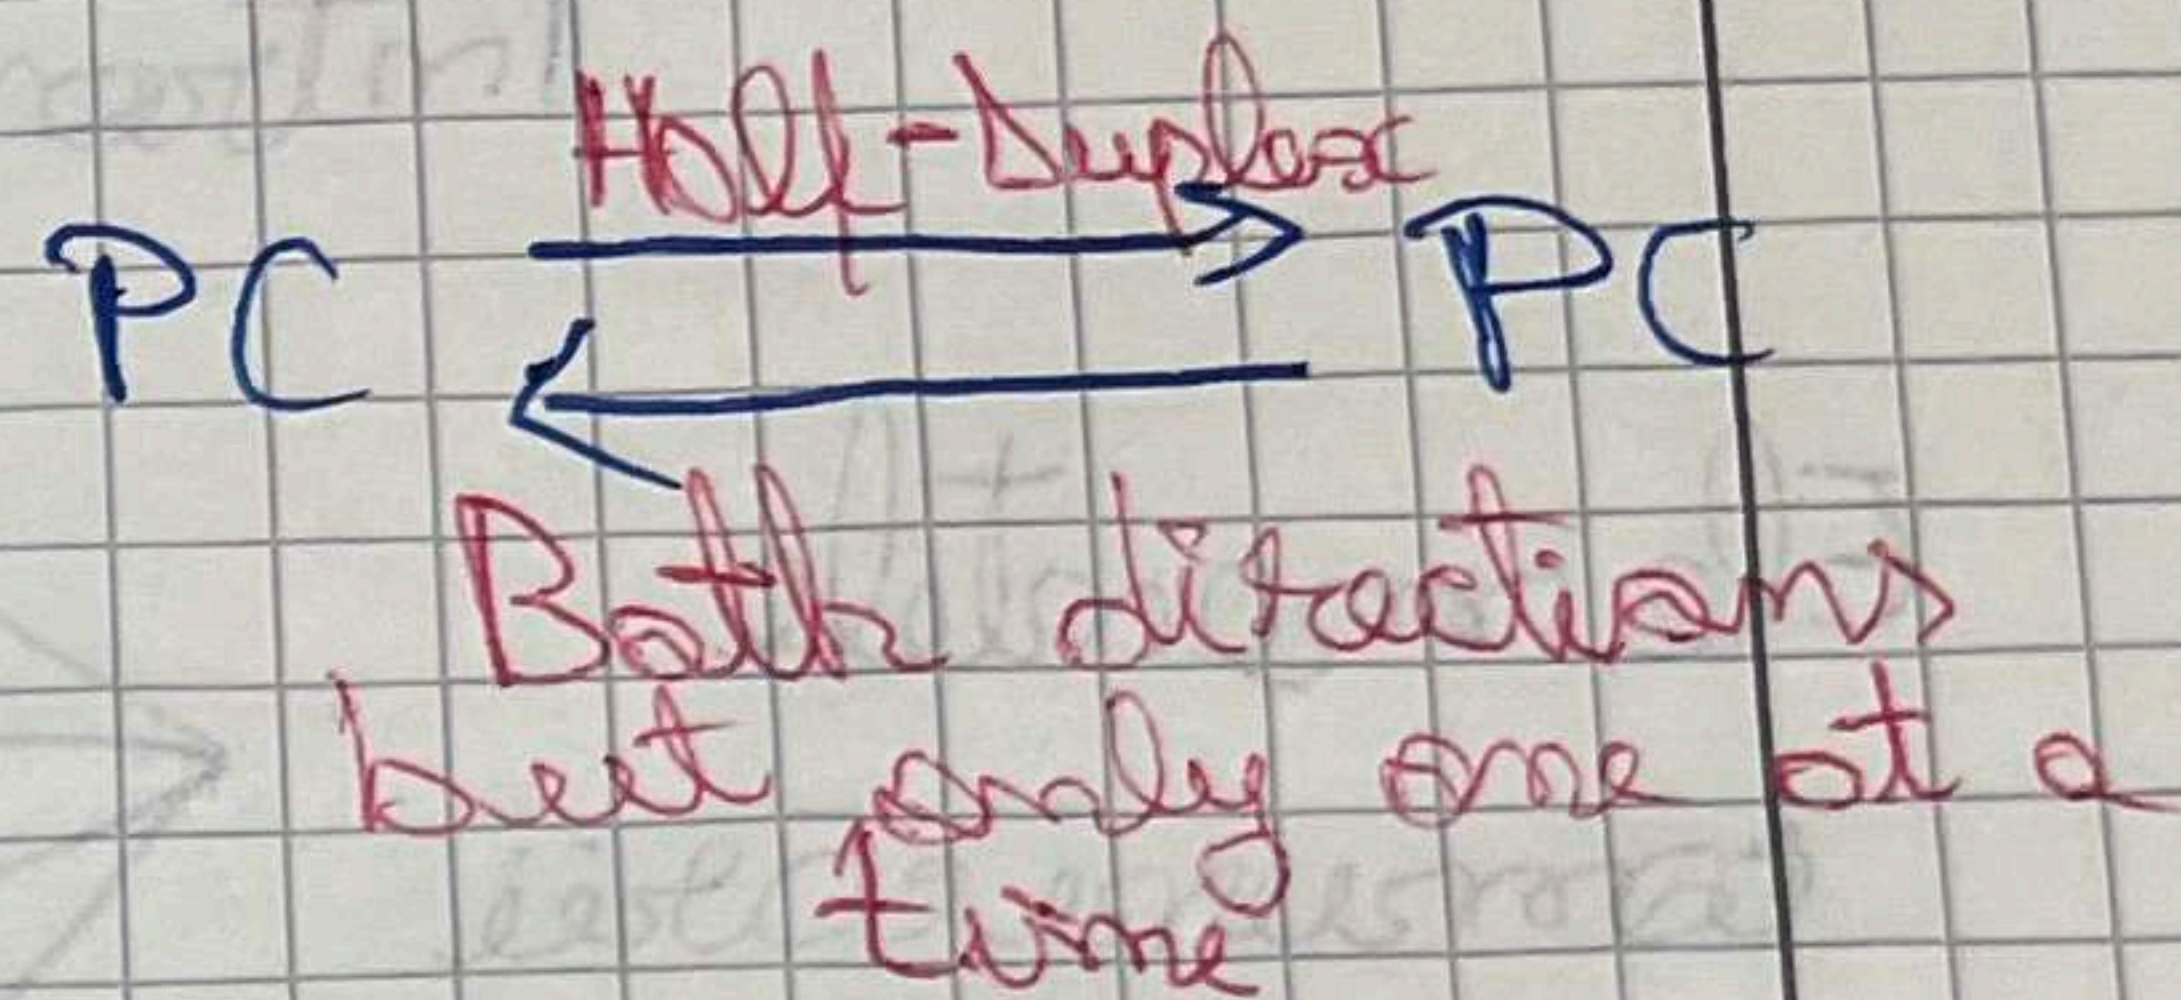 Half-Duplex
PC PC
Both directions
but only one at a
time